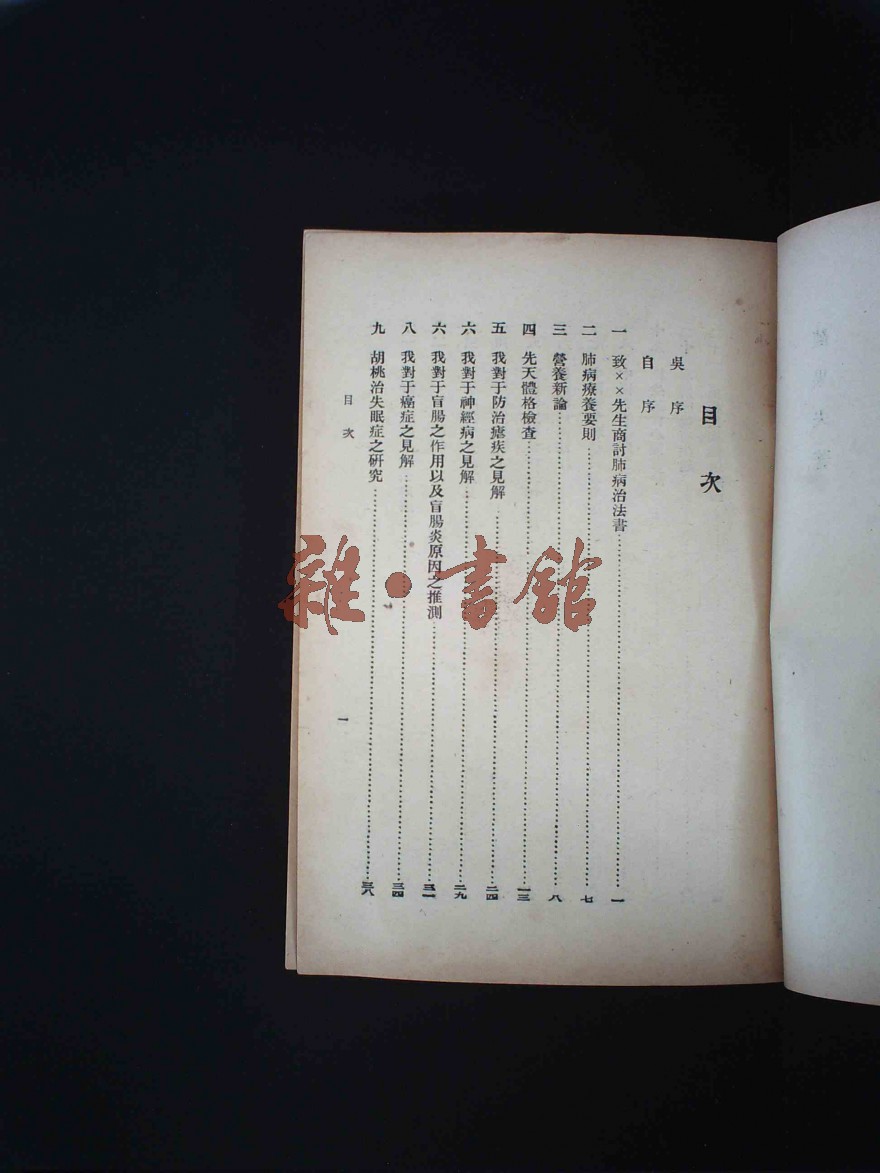 目次
吳序
自序
一 致××先生商討肺病治法書……一
二 肺病療養要則……七
三 營養新論……八
四 先天體格檢查……一三
五 我對于防治瘧疾之見解……二四
六 我對于神經病之見解……二九
六 我對于盲腸之作用以及盲腸炎原因之推測……三一
八 我對于癌症之見解……三四
九 胡桃治失眠症之研究……三八
目次
一
雜·書館